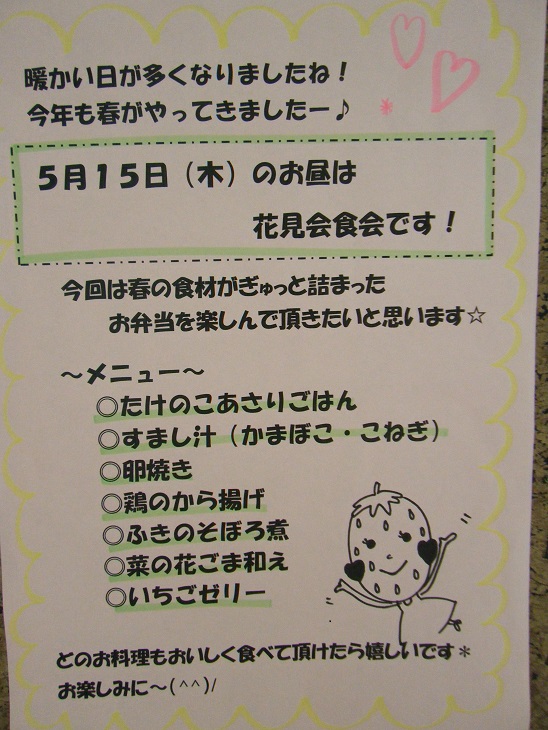 暖かい日が多くなりましたね！
今年も春がやってきましたー♪
５月１５日（木）のお昼は
花見会食会です！
今回は春の食材がぎゅっと詰まった
お弁当を楽しんで頂きたいと思います☆
～メニュー～
◎たけのこあさりごはん
◎すまし汁（かまぼこ・こねぎ）
◎卵焼き
◎鶏のから揚げ
◎ふきのそぼろ煮
◎菜の花ごま和え
◎いちごゼリー
どのお料理もおいしく食べて頂けたら嬉しいです＊
お楽しみに～(^^)/